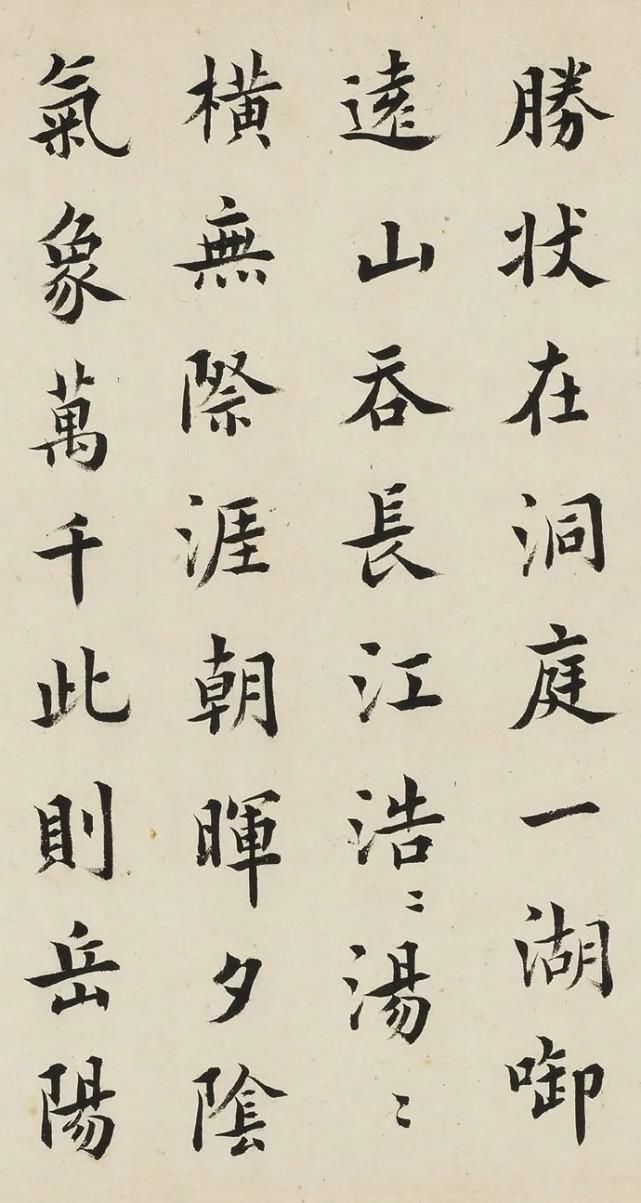 勝状在洞庭一湖啣
遠山吞長江浩〻湯〻
横無際涯朝暉夕陰
氣象萬千此則岳陽